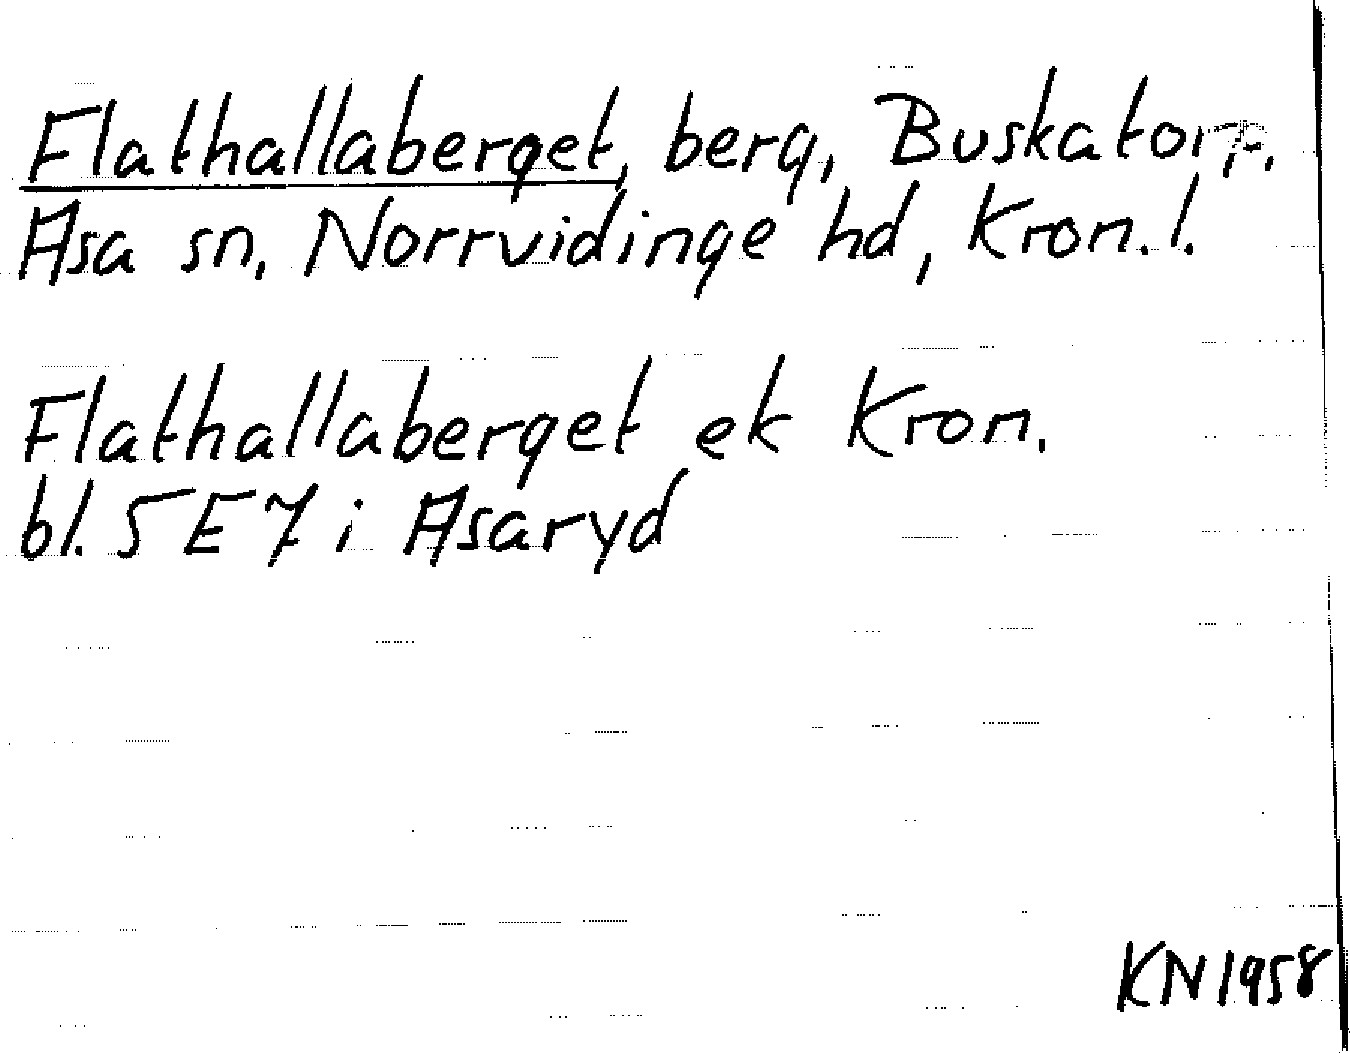 Flathallaberget, berg, Buskatorp,
Asa sn, Norrvidinge hd, Kron. l.
Flathallaberget ek Kron.
bl. 5 E 7 i Asaryd
KN 1958